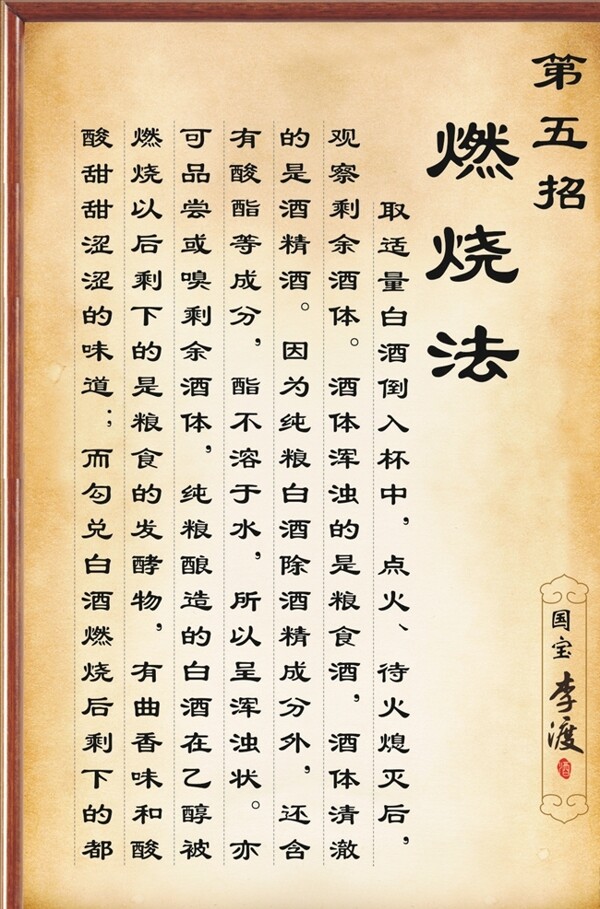 第五招
燃烧法
取适量白酒倒入杯中，点火、待火熄灭后，
观察剩余酒体。酒体浑浊的是粮食酒，酒体清澈
的是酒精酒。因为纯粮白酒除酒精成分外，还含
有酸酯等成分，酯不溶于水，所以呈浑浊状。亦
可品尝或嗅剩余酒体，纯粮酿造的白酒在乙醇被
燃烧以后剩下的是粮食的发酵物，有曲香味和酸
酸甜甜涩涩的味道；而勾兑白酒燃烧后剩下的都
国宝李渡
酒